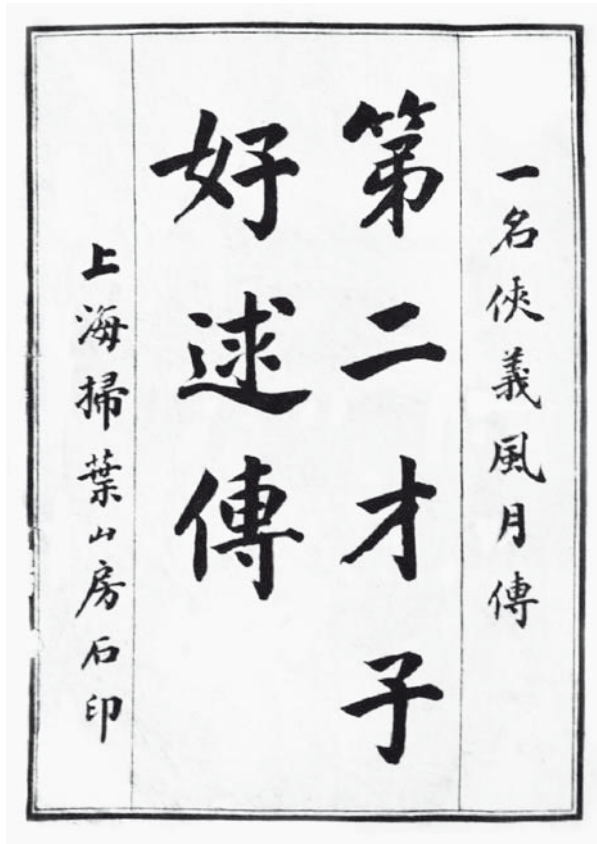 一名俠義風月傳
第二才子
好逑傳
上海掃葉山房石印